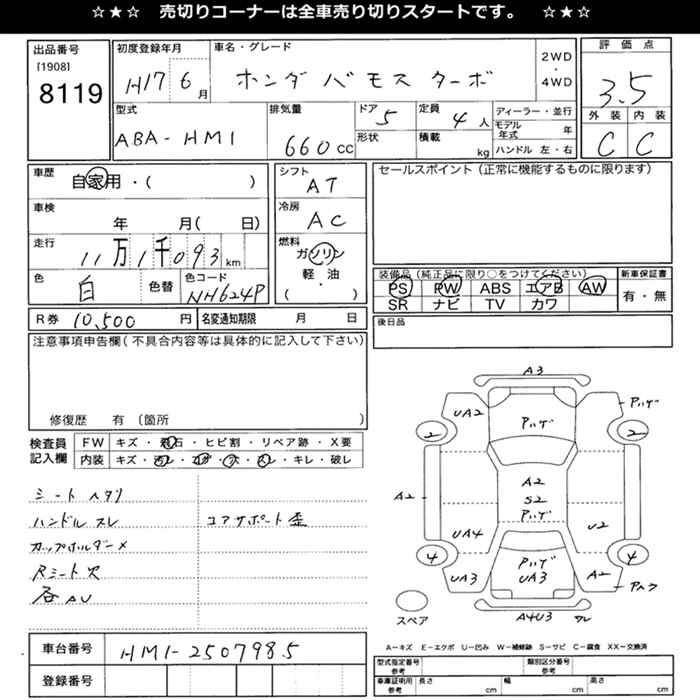 ☆★☆ 売切りコーナーは全車売り切りスタートです。 ☆★☆
出品番号
[1908]
8119
初度登録年月
H17 6月
車名・グレード
ホンダ バモス ターボ
2WD
・
4WD
評価点
3.5
外装 内装
C C
型式
ABA-HM1
排気量
660cc
ドア 5
形状
定員 4人
積載 kg
ディーラー・並行
モデル年式 年
ハンドル 左・右
車歴
自家用・( )
車検
年 月( 日)
走行
11万1千093km
色 白
色替
色コード
NH624P
シフト
AT
冷房
AC
燃料
ガソリン
軽・油
( )
セールスポイント(正常に機能するものに限ります)
装備品(純正品に限り○をつけてください)
PS PW ABS エアB AW
SR ナビ TV カワ
新車保証書
有・無
R券 10,500円
名変通知期限 月 日
後日品
注意事項申告欄(不具合内容等は具体的に記入して下さい)
修復歴 有〔箇所 〕
検査員
記入欄
FW キズ・飛石・ヒビ割・リペア跡・X要
内装 キズ・汚レ・コゲ・穴・スレ・キレ・破レ
シート ヘタリ
ハンドル スレ
コアサポート歪
カップホルダー〆
Rシート 欠
各AU
車台番号 HM1-2507985
登録番号
A3
UA2
Pハゲ
Pハゲ
2
2
A2
A2
S2
Pハゲ
UA4
U2
4
4
UA3
Pハゲ
UA3
A2
スペア
A4U3
ワレ
A-キズ E-エクボ U-凹み W-補修跡 S-サビ C-腐食 XX-交換済
型式指定番号
参考
類別区分番号
参考
車庫証明用
参考
長さ cm
幅 cm
高さ cm